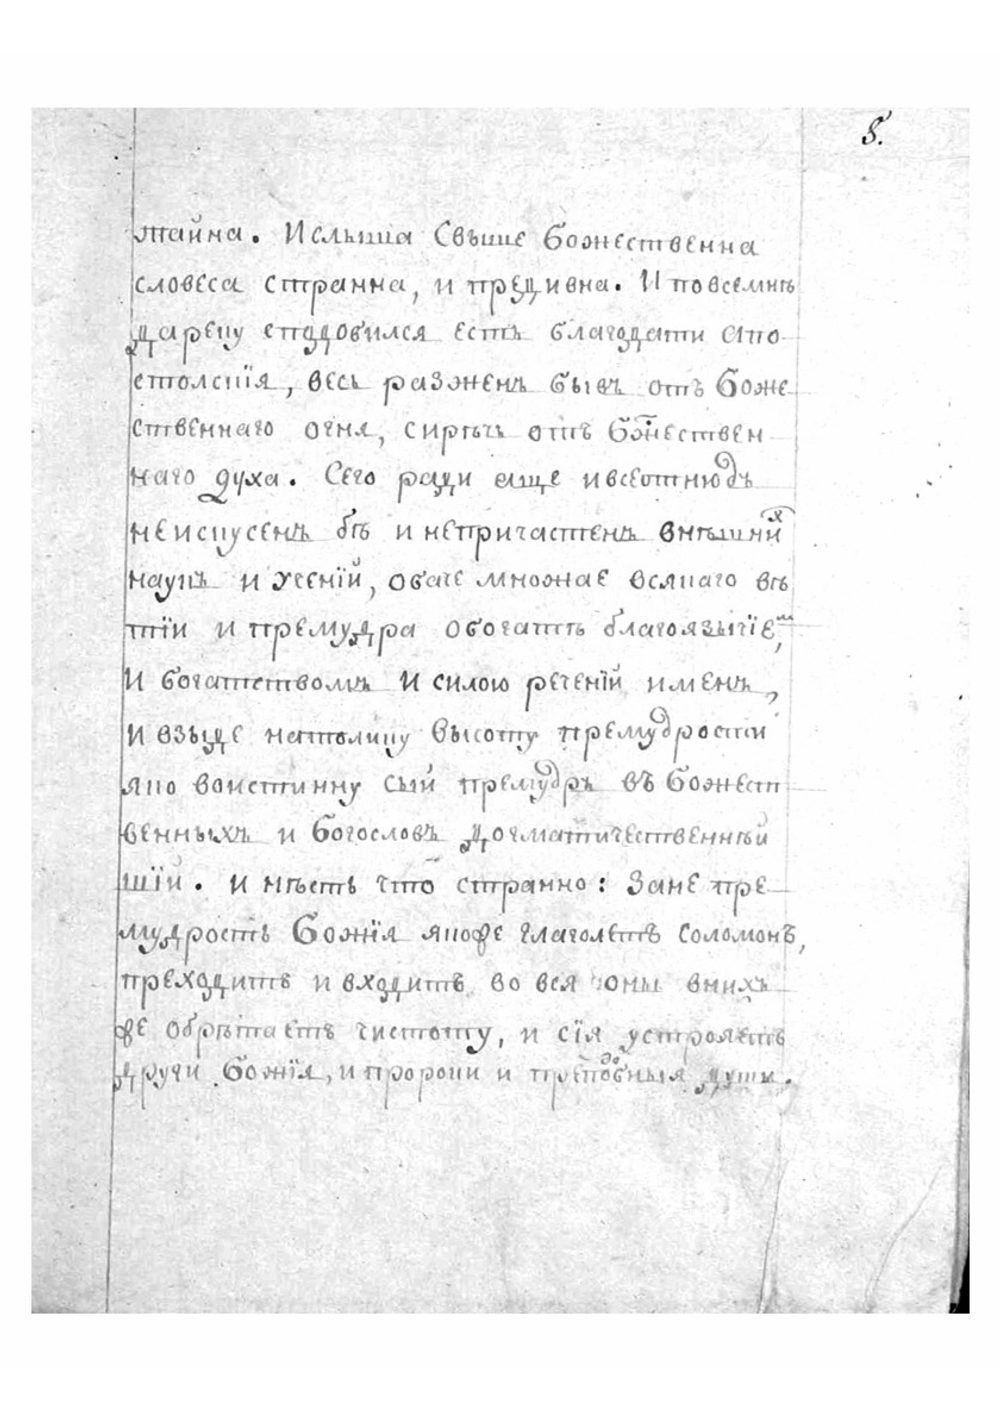 8.
тайна. И слыша Свыше Божественна
словеса странна, и предивна. И повсеминъ
дарєцу сподобился есть благодати апо-
столскїя, весь разженъ бывъ отъ Боже
ственнаго огня, сирѣчь отъ Божествен
наго духа. Сего ради аще и всеотнюдъ
неискусенъ бѣ и непричастенъ внѣшнихъ
наукъ и учений, обаче множае всякаго вѣ
тїи и премудра обогатѣ благоязычїемъ,
И богатствомъ и силою реченїй именъ,
И взыде натолику высоту премудрости
яко воистинну сый премудръ въ Божест
венныхъ и Богословъ Догматичественнѣй
шїй. и нѣсть что странно: Зане пре
мудрость Божїя якоже глаголетъ Соломонъ,
преходитъ и входитъ во вся оны вних
же обрѣтаетъ чистоту, и сїя устрояетъ
други Божїя, и пророки и преподобныя души.